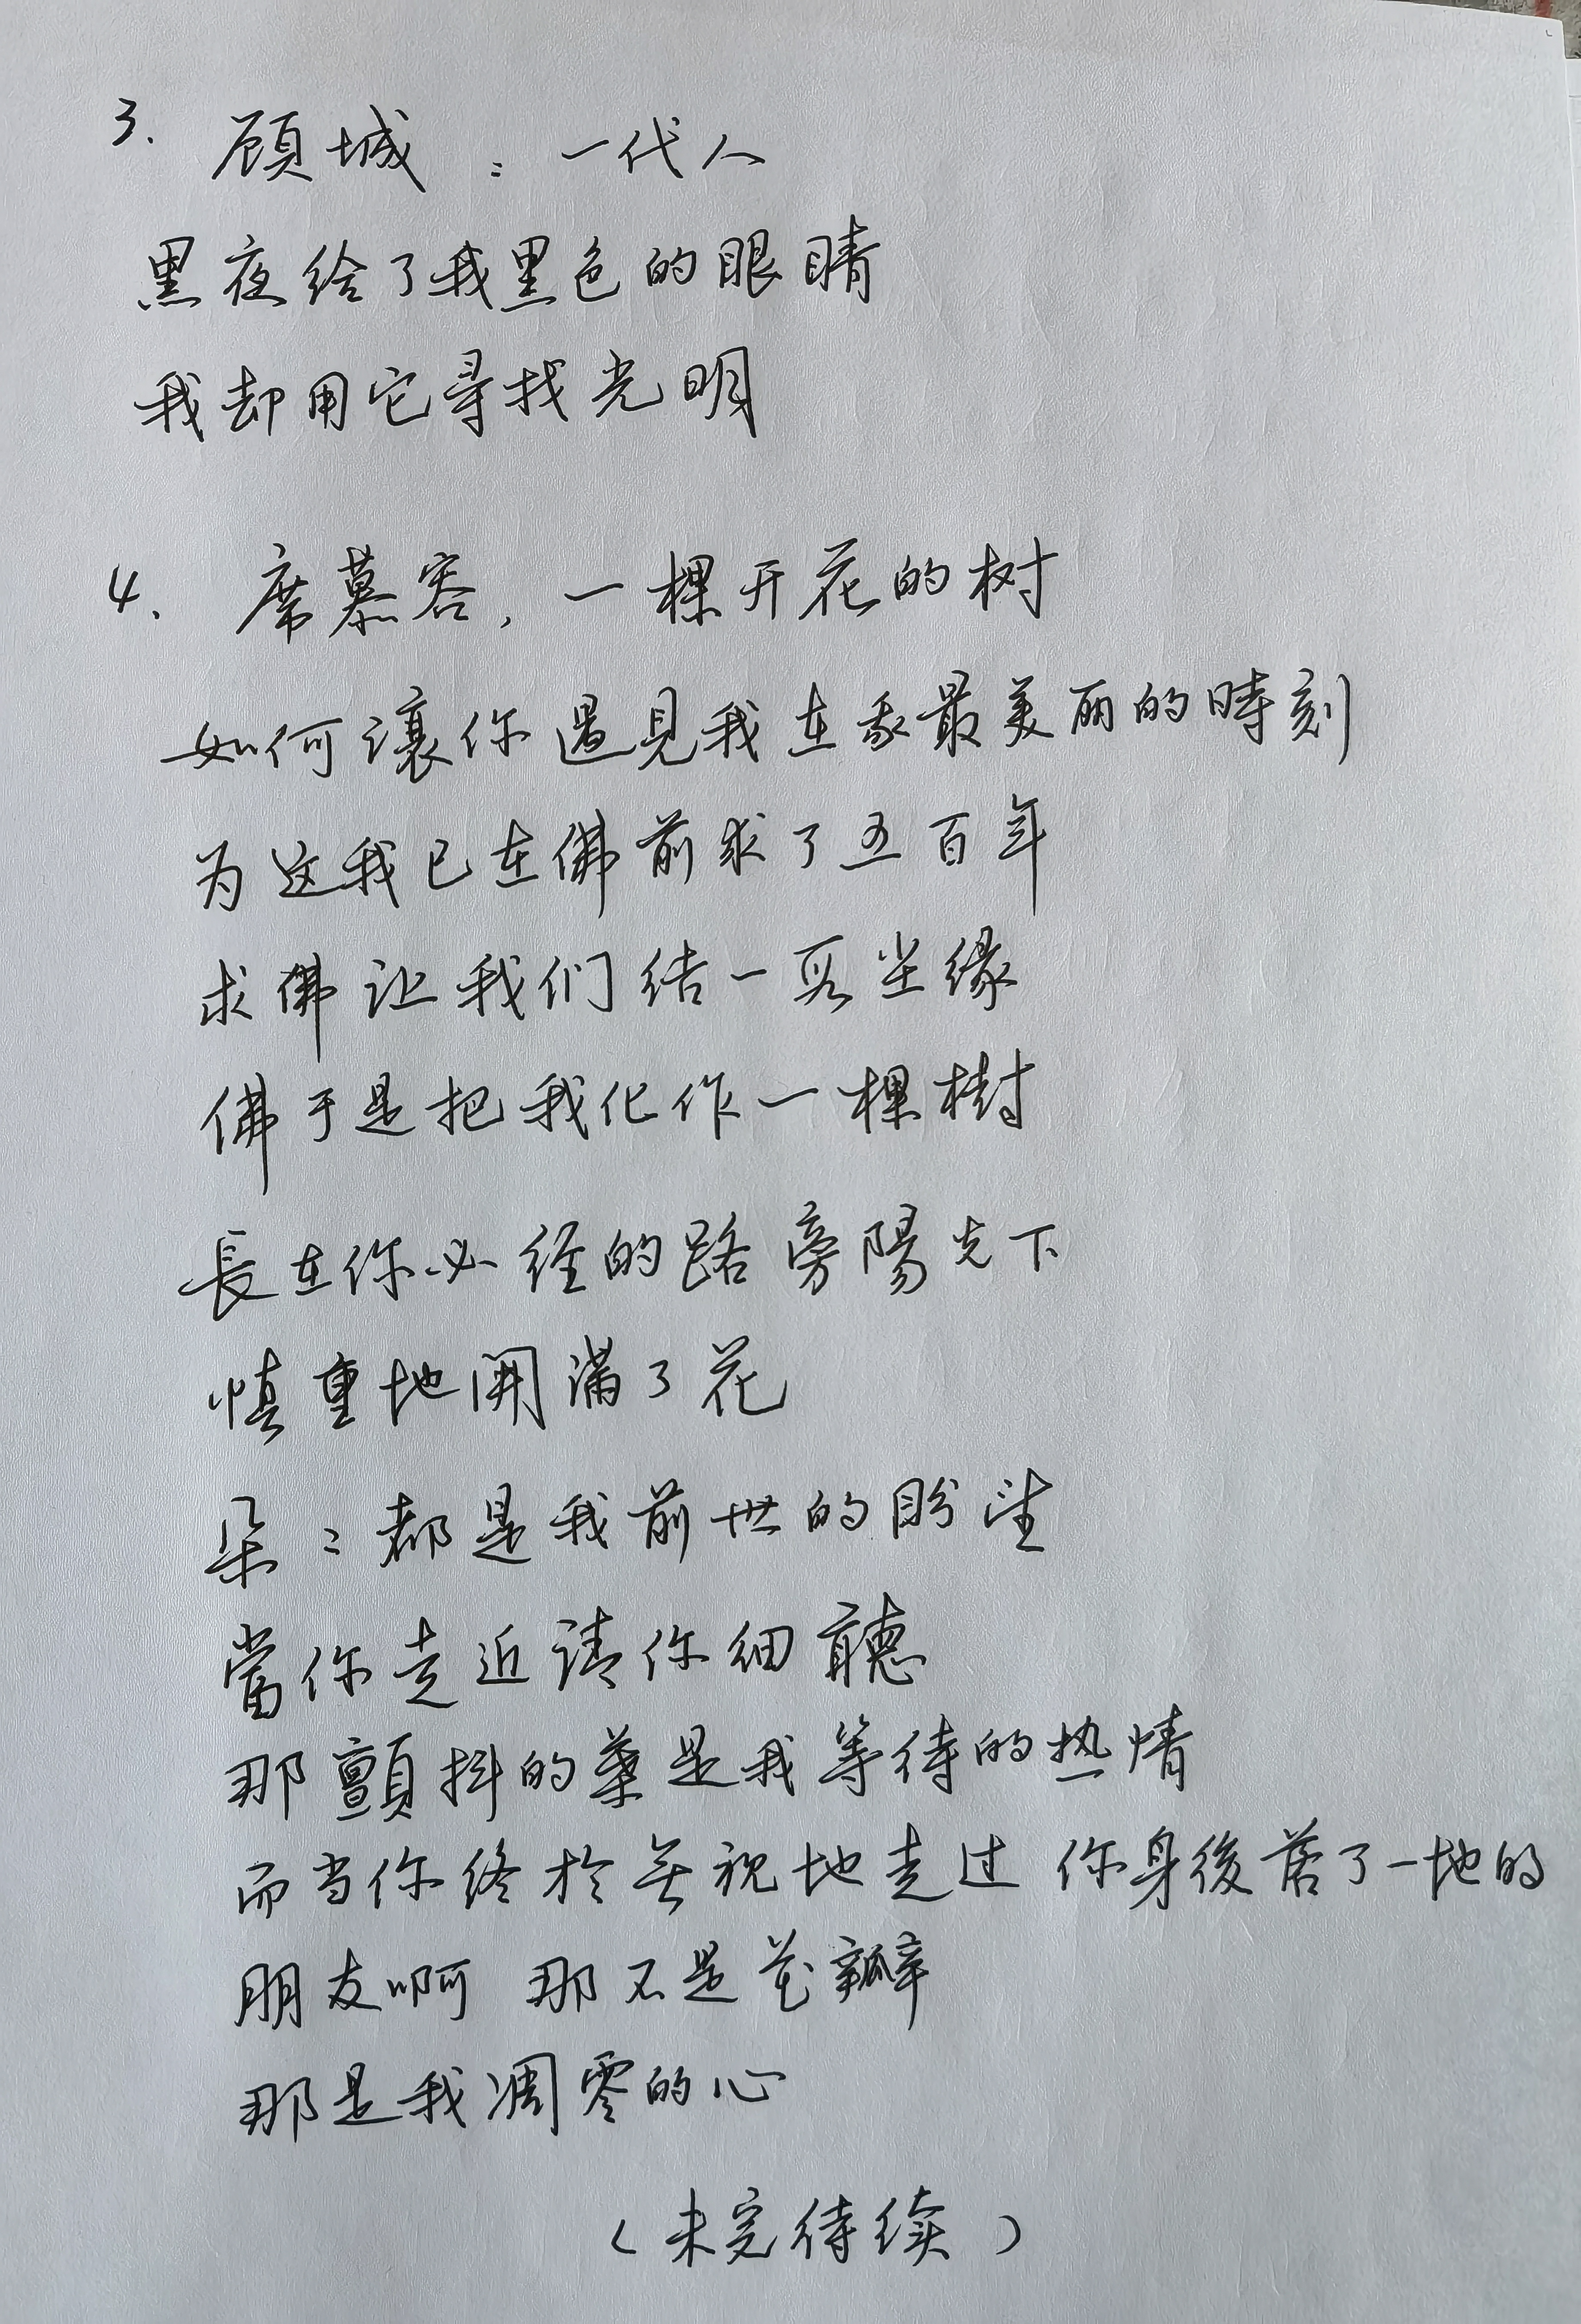 3. 顾城：一代人
黑夜给了我黑色的眼睛
我却用它寻找光明
4. 席慕容，一棵开花的树
如何讓你遇見我在我最美丽的時刻
为这我已在佛前求了五百年
求佛让我们结一段尘缘
佛于是把我化作一棵樹
長在你必经的路旁陽光下
慎重地開满了花
朵々都是我前世的盼望
當你走近请你细聽
那顫抖的葉是我等待的热情
而当你终於无视地走过 你身後落了一地的
朋友啊 那不是花瓣
那是我凋零的心
（未完待续）